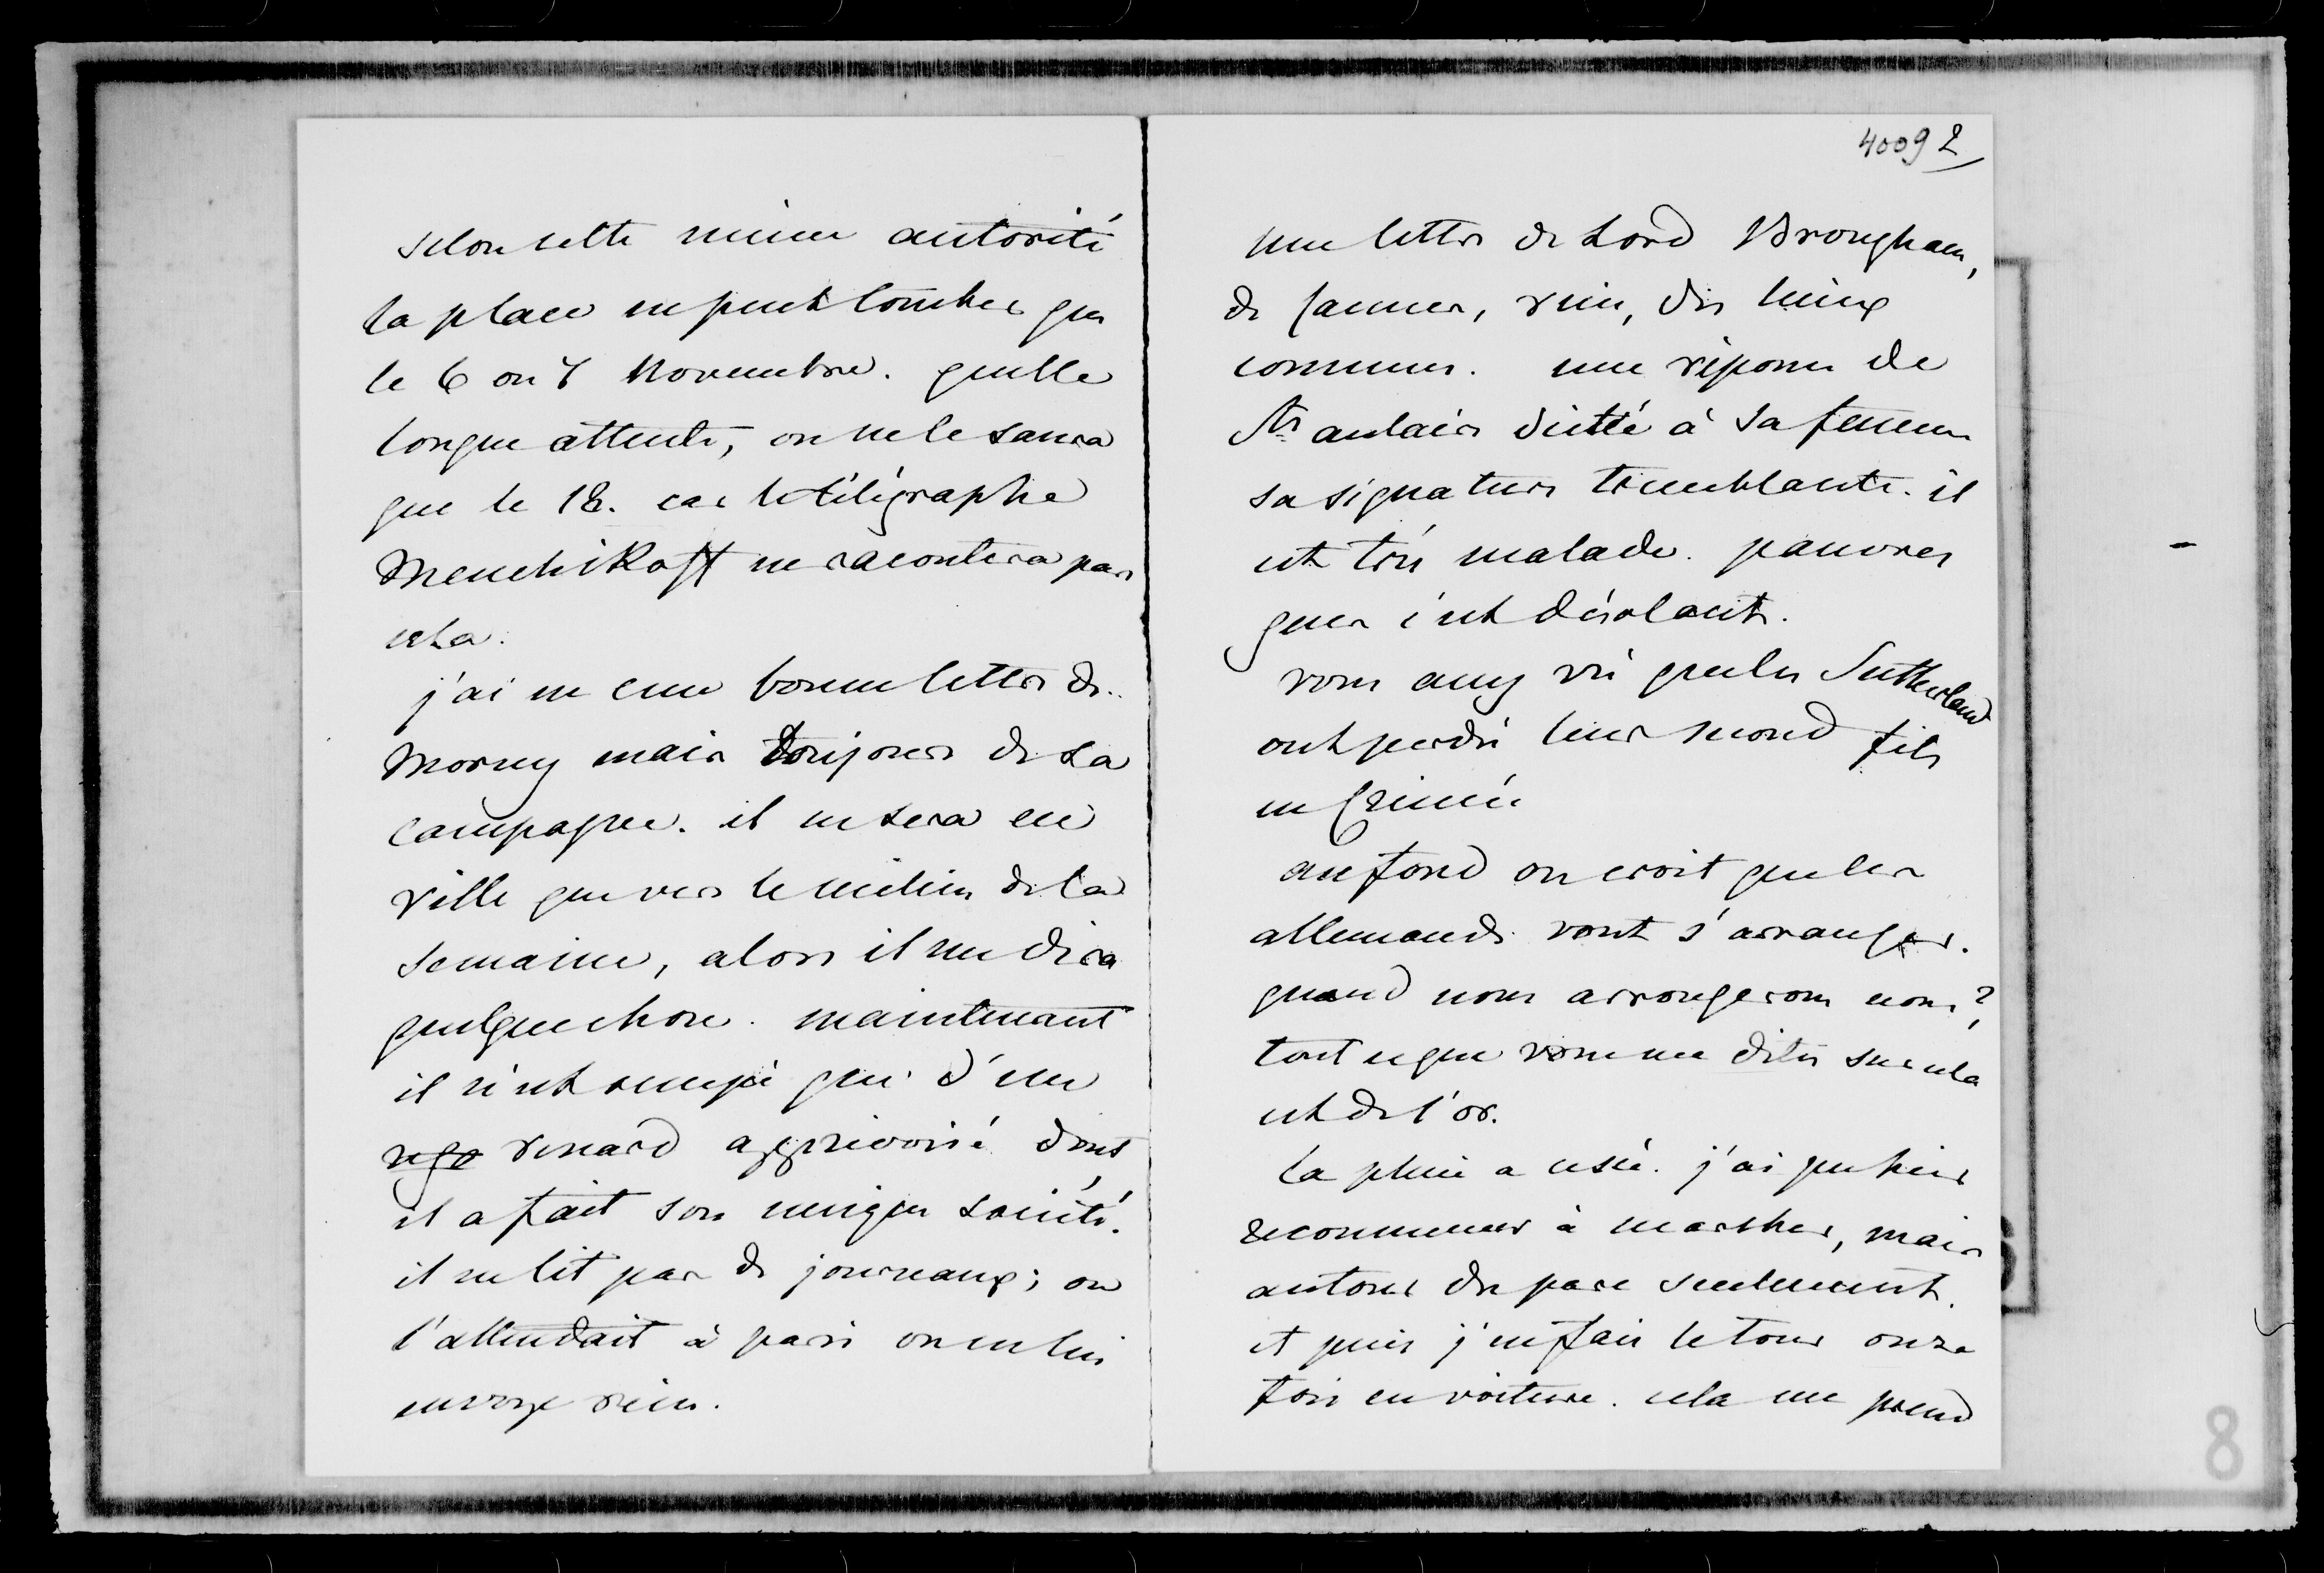 selon cette même autorité
la place ne peut tomber que
le 6 ou 7 Novembre. quelle
longue attente, on ne le saura
que le 18. car le télégraphe
Menchikoff ne racontera pas
cela.
j'ai eu une bonne lettre de
Morny mais toujours de la
campagne. il ne sera en
ville que vers le milieu de la
semaine, alors il me dira
quelque chose. maintenant
il n'est occupé que d'un
renard apprivoisé dont
il a fait son unique société.
il ne lit pas de journaux; on
l'attendait à paris on ne lui
envoye rien.
4009 2
une lettre de Lord Brougham,
de Cannes, rien, des lieux
communs. une réponse de
Ste aulaire dictée à sa femme
sa signature tremblante. il
est très malade. pauvres
gens c'est désolant.
vous avez vu que les Sutherland
ont perdu leur second fils
en Crimée
au fond on croit que les
allemands vont s'arranger.
quand nous arrangerons nous?
tout ce que vous me dites sur cela
est de l'or.
la pluie a cessé. j'ai pu hier
recommencer à marcher, mais
autour du parc seulement.
et puis j'en fais le tour onze
fois en voiture. cela me prend
8